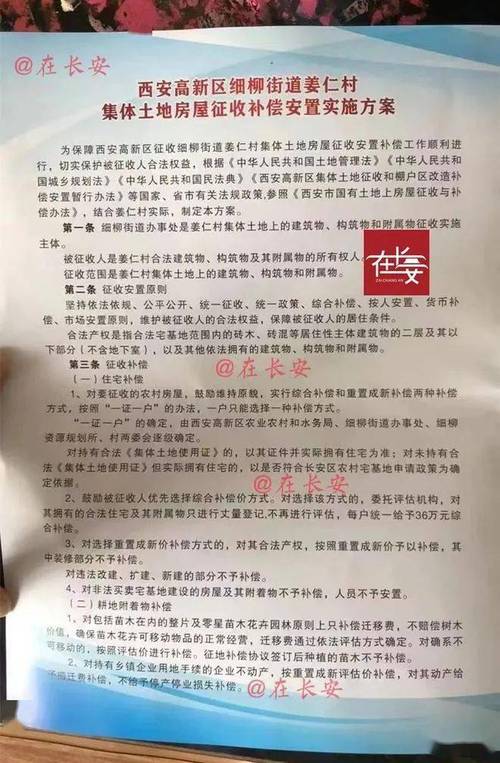 @在长安
西安高新区细柳街道姜仁村
集体土地房屋征收补偿安置实施方案
为保障西安高新区征收细柳街道姜仁村集体土地房屋征收安置补偿工作顺利进
行，切实保护被征收人合法权益，根据《中华人民共和国土地管理法》《中华人民共和
国城乡规划法》《中华人民共和国民法典》《西安高新区集体土地征收和棚户区改造补
偿安置暂行办法》等国家、省市有关法规政策,参照《西安市国有土地上房屋征收与补
偿办法》，结合姜仁村实际，制定本方案。
第一条 细柳街道办事处是姜仁村集体土地上的建筑物、构筑物和附属物征收实施
主体。
被征收人是姜仁村合法建筑物、构筑物及其附属物的所有权人。
征收范围是姜仁村集体土地上的建筑物、构筑物和附属物。
在长安
ZAI CHANG AN
第二条 征收安置原则
坚持依法依规、公平公开、统一征收、统一政策、综合补偿、按人安置、货币补
偿、市场安置原则，维护被征收人的合法权益，保障被征收人的居住条件。
合法产权是指合法宅基地范围内的砖木、砖混等居住性主体建筑物的二层及其以
下部分（不含地下室），以及其他依法拥有的建筑物、构筑物和附属物。
第三条 征收补偿
@在长安
（一）住宅补偿
1、对要征收的农村房屋，鼓励维持原貌，实行综合补偿和重置成新补偿两种补偿
方式，按照“一证一户”的办法，一户只能选择一种补偿方式。
“一证一户”的确定，由西安高新区农业农村和水务局、细柳街道办事处、细柳
资源规划所、村两委会逐级确定。
对持有合法《集体土地使用证》的，以其证件并实际拥有住宅为准；对未持有合
法《集体土地使用证》但实际拥有住宅的，以是否符合长安区农村宅基地申请政策为确
定依据。
@在长安
2、鼓励被征收人优先选择综合补偿价方式。对选择该方式的，委托评估机构，对
其拥有的合法住宅及其附属物只进行丈量登记,不再进行评估，每户统一给予36万元综
合补偿。
3、对选择重置成新价补偿方式的，对其合法产权，按照重置成新价予以补偿，其
中装修部分不予补偿。
对违法改建、扩建、新建的部分不予补偿。
4、对非法买卖宅基地建设的房屋及其附着物不予补偿，人员不予安置。
（二）耕地附着物补偿
1、对包括苗木在内的整片及零星苗木花卉园林原则上只补偿迁移费，不赔偿树木
价值，确保苗木花卉可移动物品的正常经营，迁移费通过依法评估方式确定。对确系不
可移动的，按照评估价进行补偿。征地补偿协议签订后种植的苗木不予补偿。
2、对持有乡镇企业用地手续的企业不动产，按重置成新评估价补偿，对其动产给
予搬迁费补偿，不给予停产停业损失补偿。
@在长安